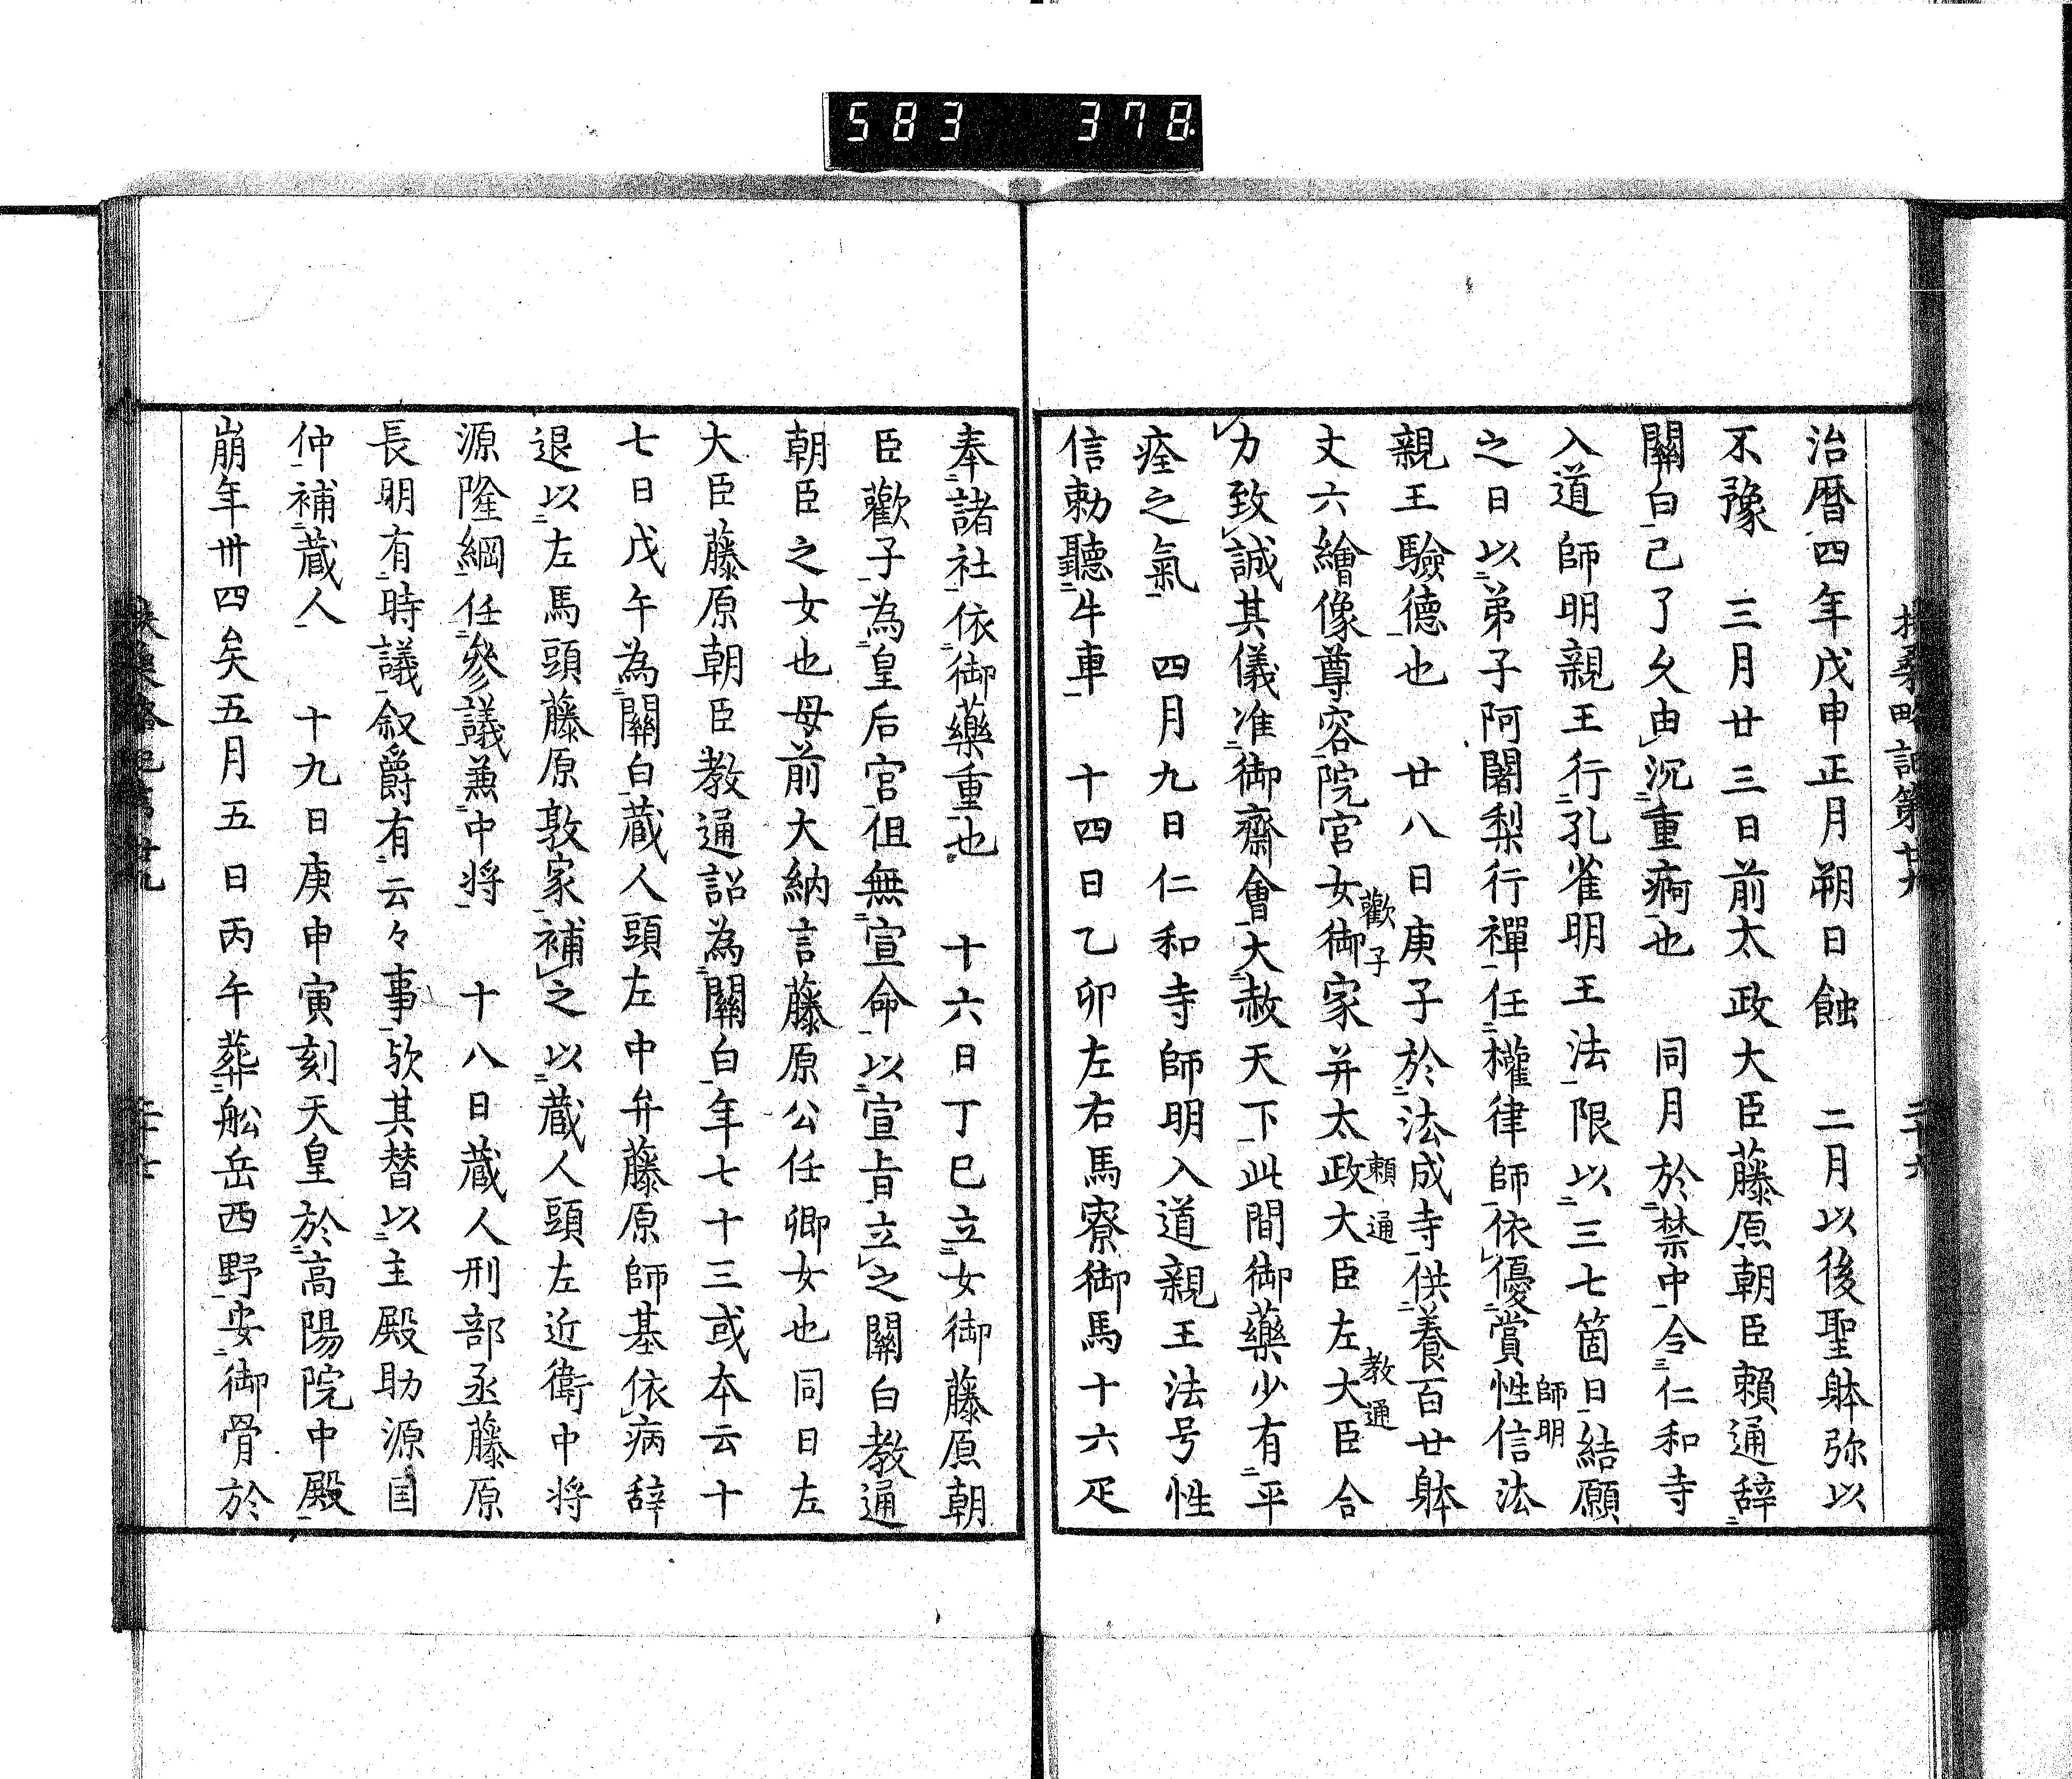 583 378
治曆四年戊申正月朔日蝕 二月以後聖躰弥以
不豫 三月廿三日前太政大臣藤原朝臣賴通辞
關白己了久由沉重痾也 同月於禁中令仁和寺
入道師明親王行孔雀明王法限以三七箇日結願
之日以弟子阿闍梨行禪任權律師依優賞性信法
師明
親王驗德也 廿八日庚子於法成寺供養百廿躰
丈六繪像尊容院宮女御家并太政大臣左大臣合
歡子
賴通
教通
力致誠其儀准御齋會大赦天下此間御藥少有平
痊之氣 四月九日仁和寺師明入道親王法号性
信勅聽牛車 十四日乙卯左右馬寮御馬十六疋
奉諸社依御藥重也 十六日丁巳立女御藤原朝
臣歡子為皇后宮但無宣命以宣旨立之關白教通
朝臣之女也母前大納言藤原公任卿女也同日左
大臣藤原朝臣教通詔為關白年七十三或本云十
七日戊午為關白蔵人頭左中弁藤原師基依病辞
退以左馬頭藤原敦家補之以蔵人頭左近衛中将
源隆綱任參議兼中将 十八日蔵人刑部丞藤原
長明有時議叙爵有云々事欤其替以主殿助源国
仲補蔵人 十九日庚申寅刻天皇於高陽院中殿
崩年卅四矣五月五日丙午葬舩岳西野安御骨於